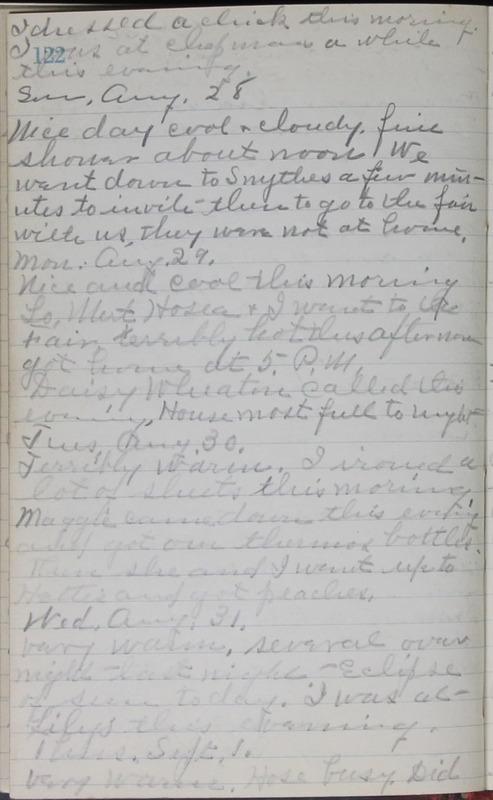 I dressed a chick this moring.
122
I was at Chapmans a while
this evening.
Sun, Aug. 28
Nice day cool & cloudy. fine
shower about noon. We
went down to Snythes a few min-
utes to invite them to go to the fair
with us, they were not at home.
Mon. Aug. 29.
Nice and cool this morning
Lo, Mert, Hosea & I went to the
Fair, terribly hot this afternoon
got home at 5. P.M.
Daisy Wheaton called this
evening, House most full to night
Tues, Aug. 30.
Terribly warm. I ironed a
lot of sheets this moring
Maggie came down this evening
and got our thermos bottles.
Then she and I went up to
Hatties and got peaches.
Wed. Aug. 31.
very warm, several over
night last night - Eclipse
of sun today. I was at
Lilys this evening.
Thurs. Sept. 1.
very warm. Hose busy. Did